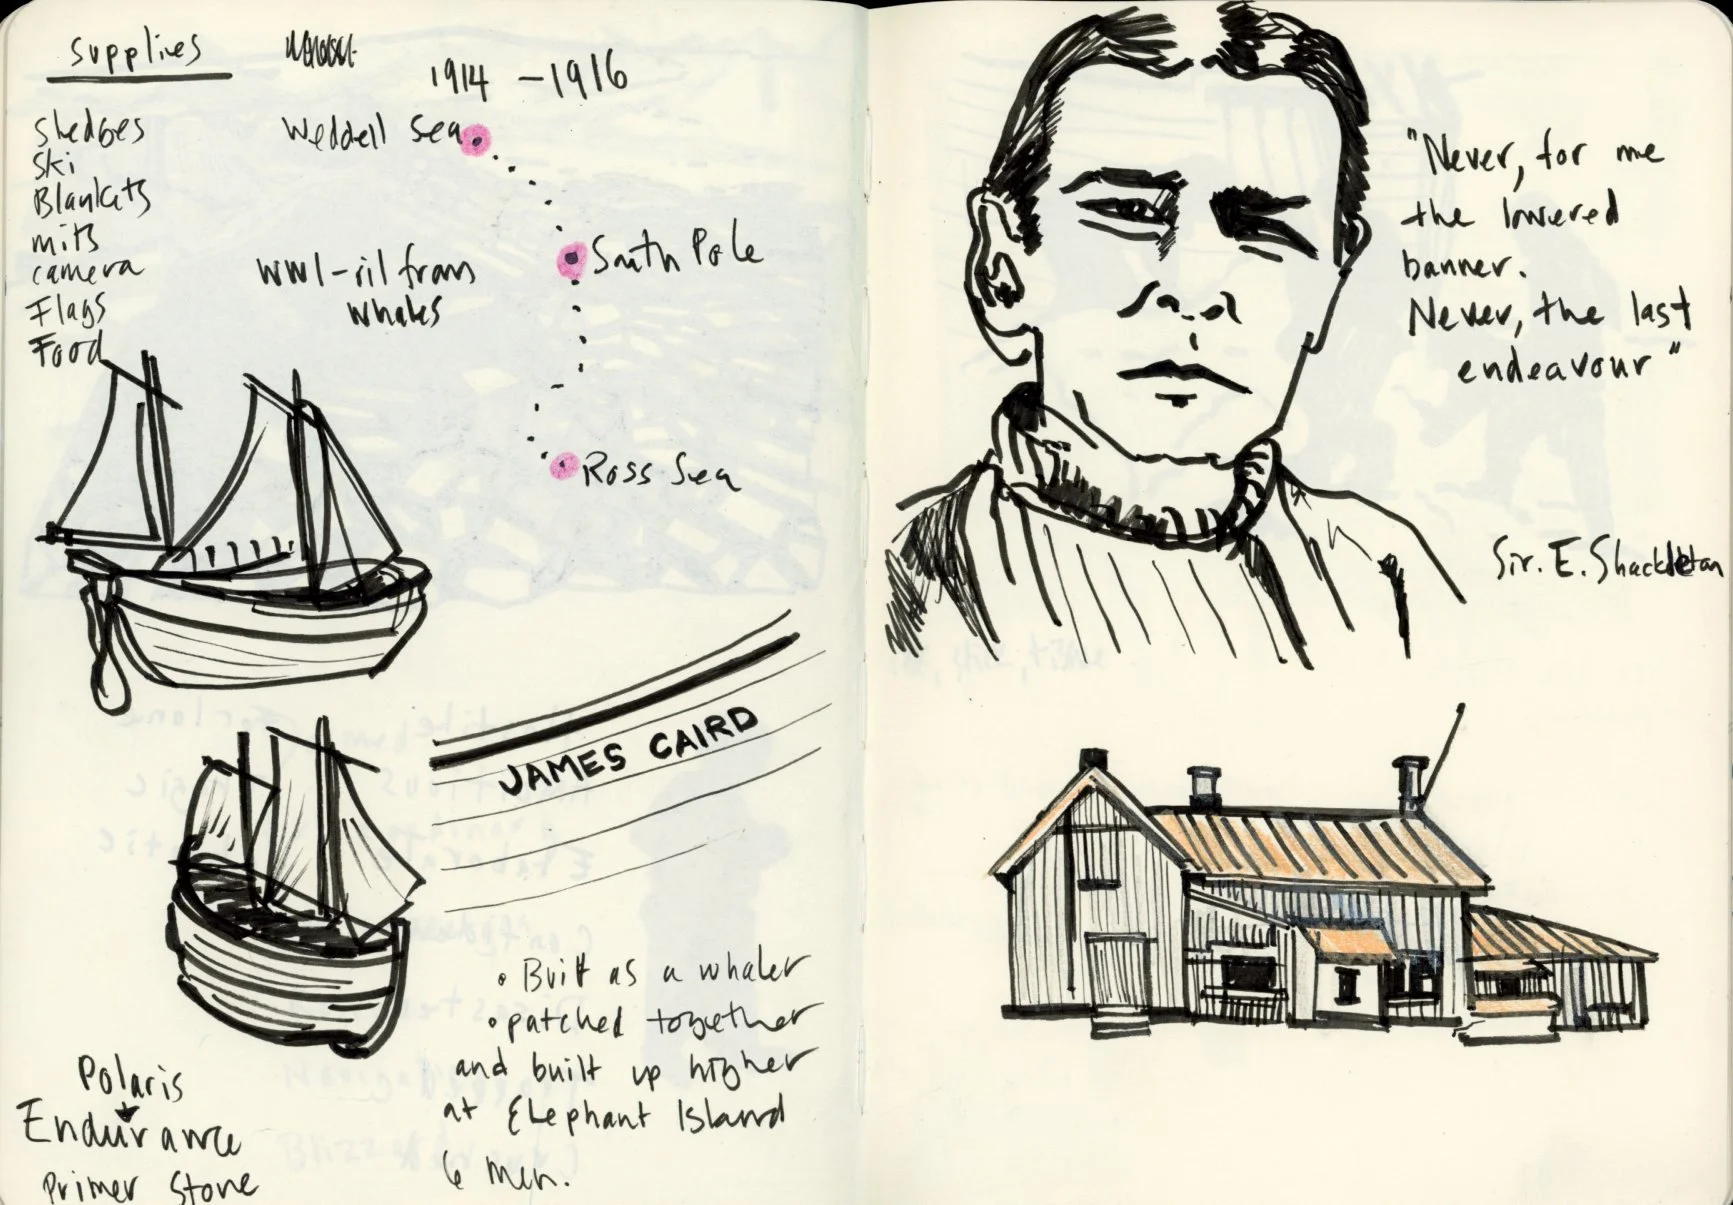 Supplies
1914 - 1916
Sledges
Ski
Blankets
mits
camera
Flags
Food
Weddell Sea
South Pole
WW1-oil from
whales
Ross Sea
JAMES CAIRD
• Built as a whaler
• patched together
and built up higher
at Elephant Island
6 men.
Polaris
Endurance
Primer Stove
"Never, for me
the lowered
banner.
Never, the last
endeavour"
Sir. E. Shackleton